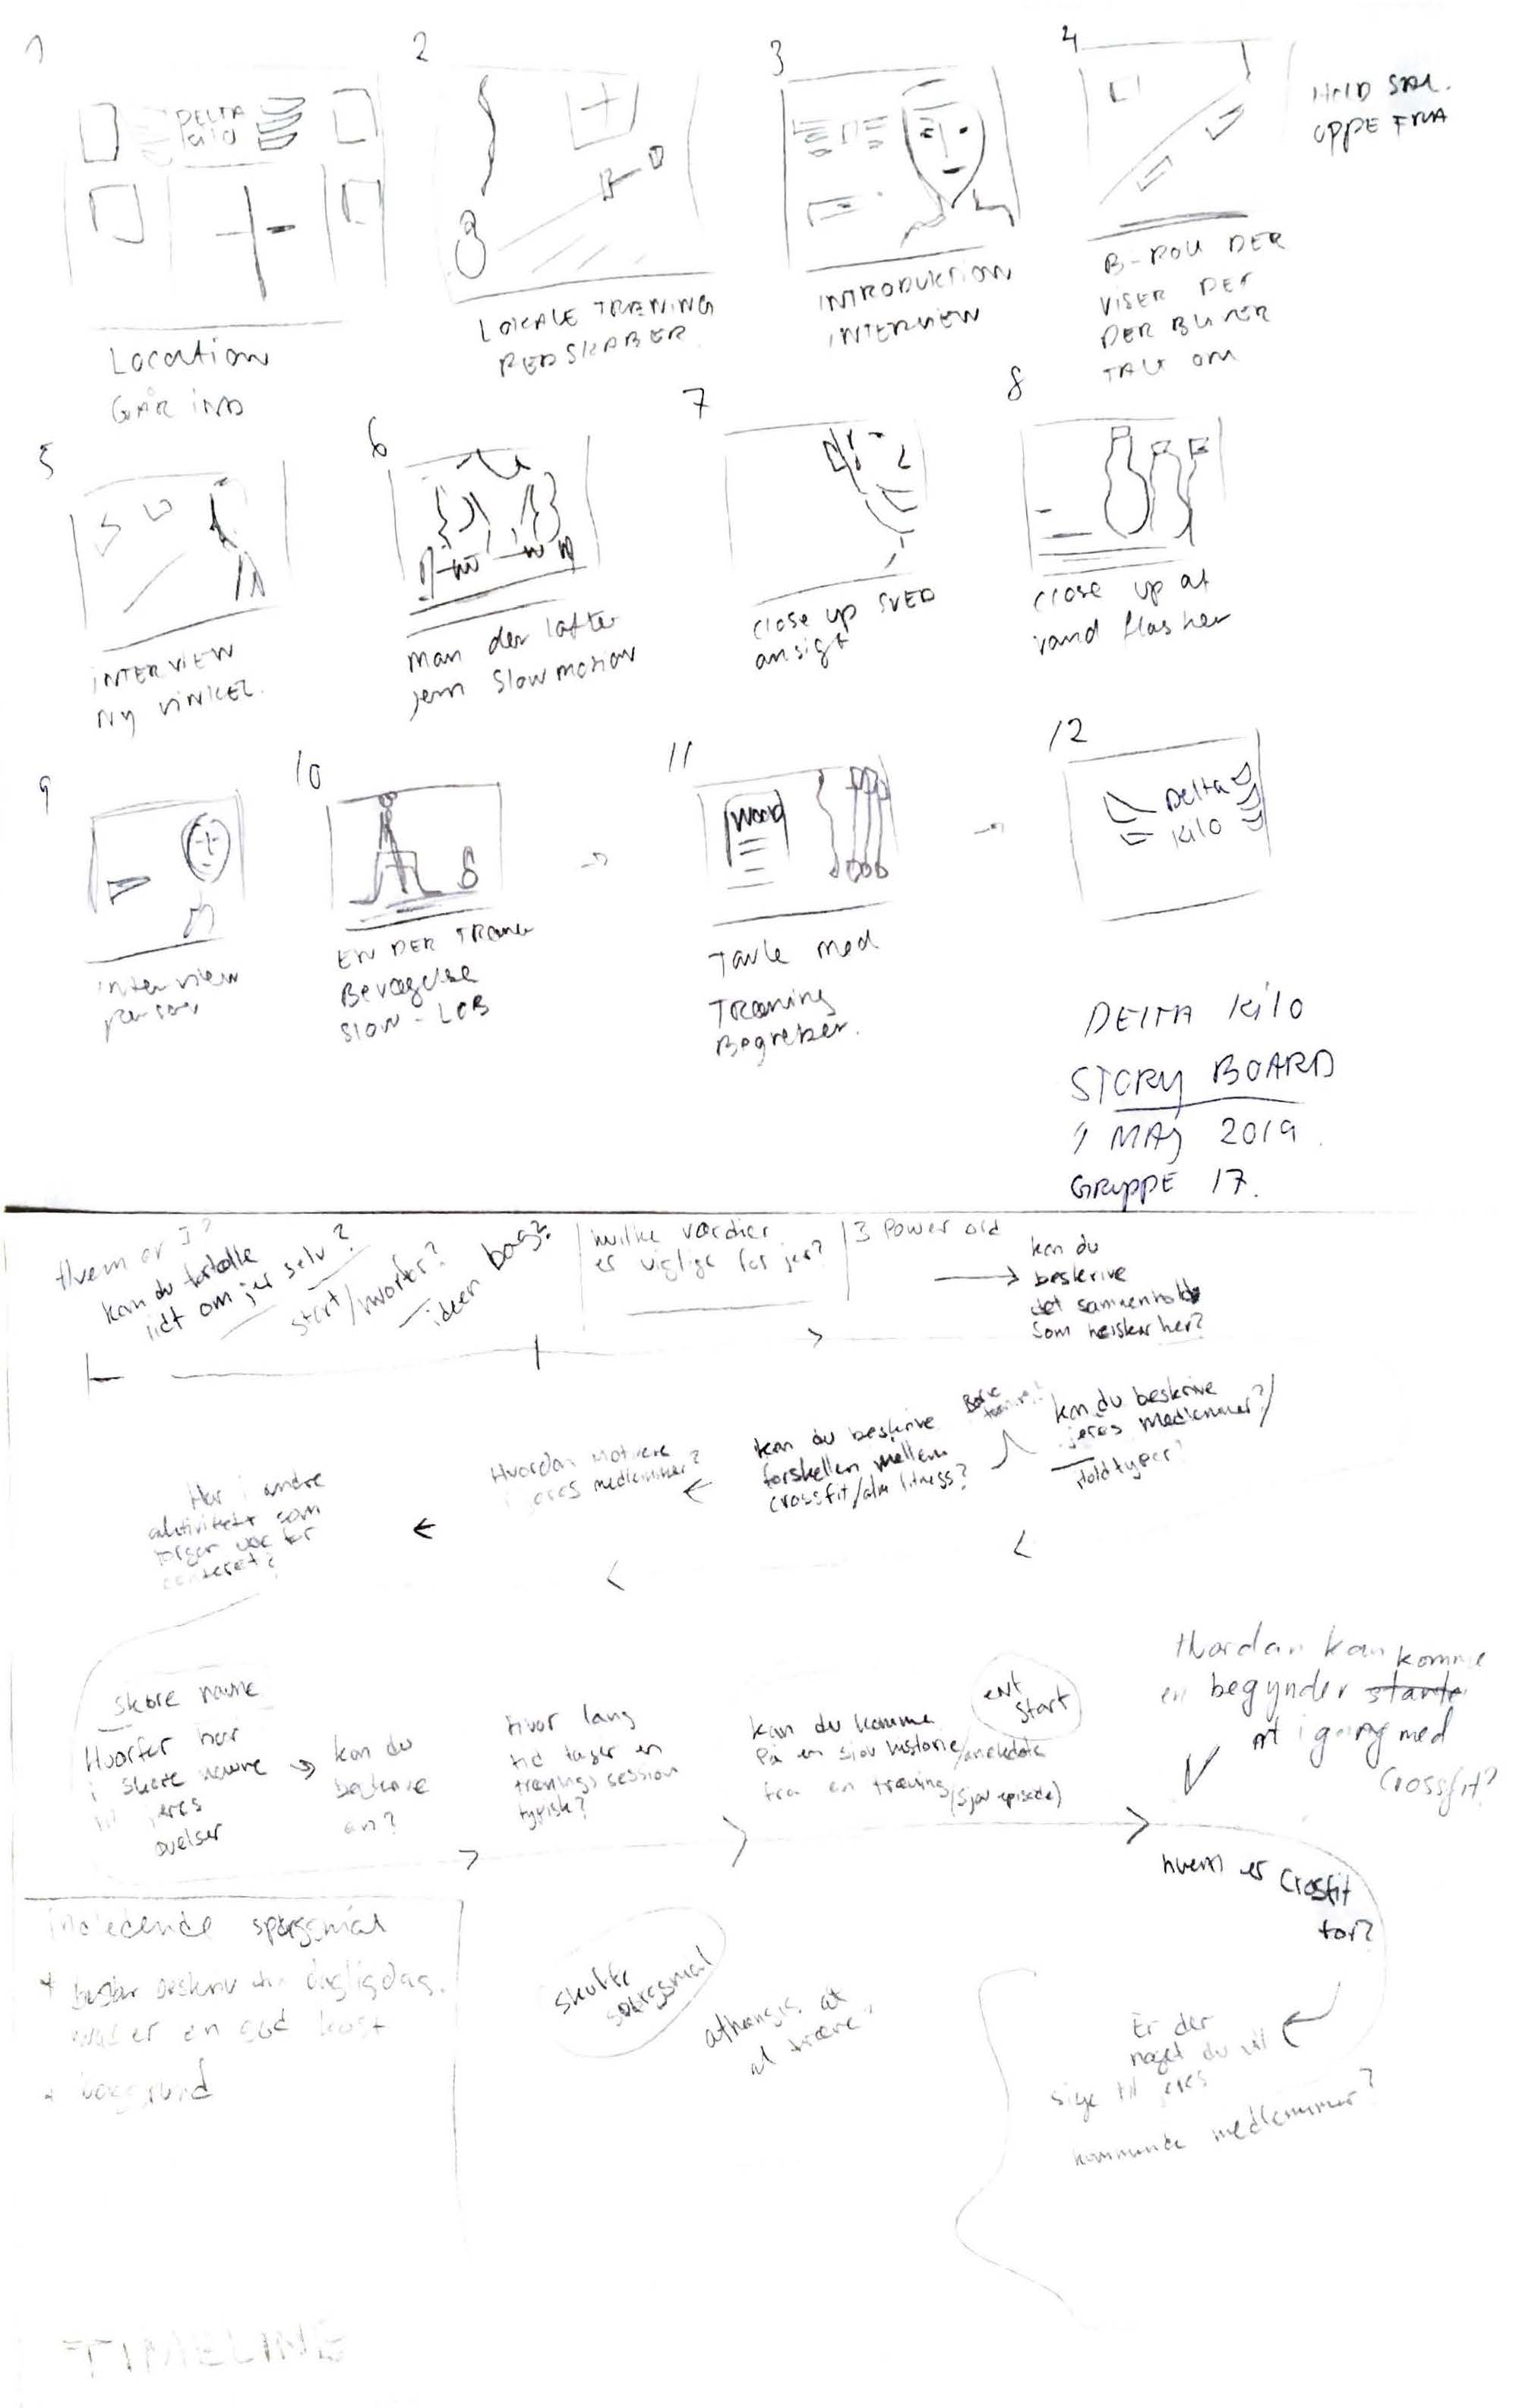 1
2
3
4
DELTA
kilo
HOLD SAL.
OPPE FRA
Location
GÅR IND
LOKALE TRÆNING
REDSKABER
INTRODUKTION
INTERVIEW
B-ROLL DER
VISER DET
DER BLIVER
TALT OM
5
6
7
8
INTERVIEW
Ny VINKEL.
man der løfter
jern Slowmotion
close up SVED
ansigt
close up af
vand flasker
9
10
11
12
Wood
Delta
kilo
interview
person
EN DER TRÆNER
Bevægelse
SLOW-LØB
Tavle med
TRÆNING
Begreber.
DELTA kilo
STORY BOARD
1 MAJ 2019.
GRUPPE 17.
Hvem er I?
kan du fortælle
lidt om jer selv?
start/hvorfor?
ideen bag?
hvilke værdier
er vigtige for jer?
3 Power ord
kan du
beskrive
det sammenhold
som hersker her?
kan du beskrive
jeres medlemmer?/
Holdtyper?
kan du beskrive
forskellen mellem
crossfit/alm fitness?
Hvordan motivere
i jeres medlemmer?
Har i andre
aktiviteter som
foregår ude for
centeret?
skøre navne
Hvorfor har
i skøre navne
til jeres
øvelser
kan du
beskrive
en?
hvor lang
tid tager en
trænings session
typisk?
evt
start
kan du komme
På en sjov historie/anekdote
fra en træning/(sjov episode)
Hvordan kan komme
en begynder starte
i gang med
Crossfit?
hvem er Crosfit
for?
Er der
noget du vil
sige til jeres
kommende medlemmer?
Indledende spørgsmål
dagligdag.
hvad er en god kost
baggrund
skuffe
spørgsmål
afhængig af
at træne?
TIMELINE